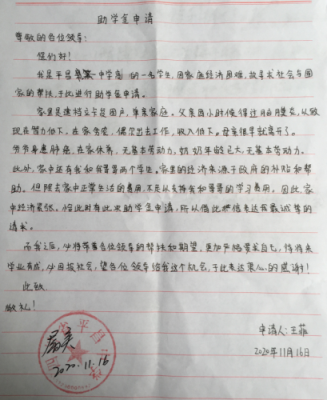 助学金申请
尊敬的各位领导:
您们好!
我是平昌县 中学 的一名学生,因家庭经济困难,故寻求社会与国
家的帮扶,于此进行助学金申请。
家里是建档立卡贫困户,单亲家庭。父亲因小时候得过 ,从致
现在智力低下,在家务农,偶尔出去工作,收入低下。母亲很早就离开了。
爷爷身患肿瘤,在家休养,无基本劳动力,奶奶年龄已大,无基本劳动力。
此外,家中还有我和哥哥两个学生。家里的经济来源于政府的补贴和帮
助。但除去家中正常生活的费用,不足以支持我和哥哥的学习费用。因此,家
中经济紧张。恰此时有此次助学金申请,所以借此机会表达我最诚挚的
请求。
而我之后,必将带着各位领导的帮扶和期望,更加严格要求自己,待将来
学业有成,必回报社会,望各位领导给我这个机会,于此表达衷心的感谢!
此致
敬礼!
申请人:王菲
2020年11月16日
平昌
属实
2020.11.16